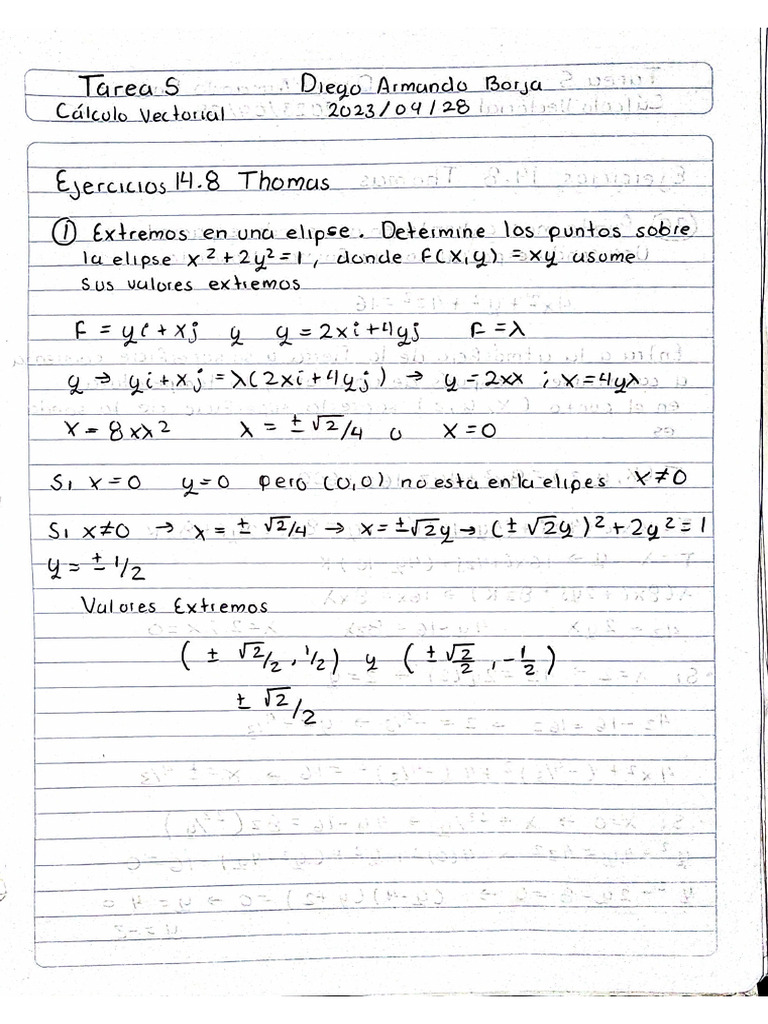 Tarea 5 Diego Armando Borja
Cálculo Vectorial 2023/04/28
Ejercicios 14.8 Thomas
① Extremos en una elipse. Determine los puntos sobre
la elipse x²+2y²=1, donde f(x,y)=xy asume
sus valores extremos
F = yi + xj y y = 2xi+4yj F=λ
y → yi+xj = λ(2xi+4yj) → y=2xλ ; x=4yλ
x = 8xλ² λ = ±√2/4 o x=0
Si x=0 y=0 pero (0,0) no esta en la elipes x≠0
Si x≠0 → x = ± √2/4 → x=±√2y → (± √2y)²+2y²=1
y = ± 1/2
Valores Extremos
(± √2/2, 1/2) y (± √2/2, -1/2)
± √2/2